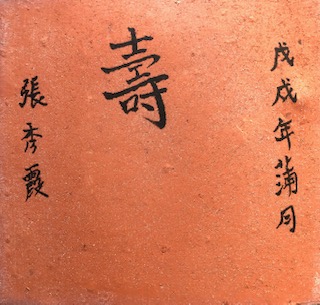 戊戌年蒲月
壽
張秀霞